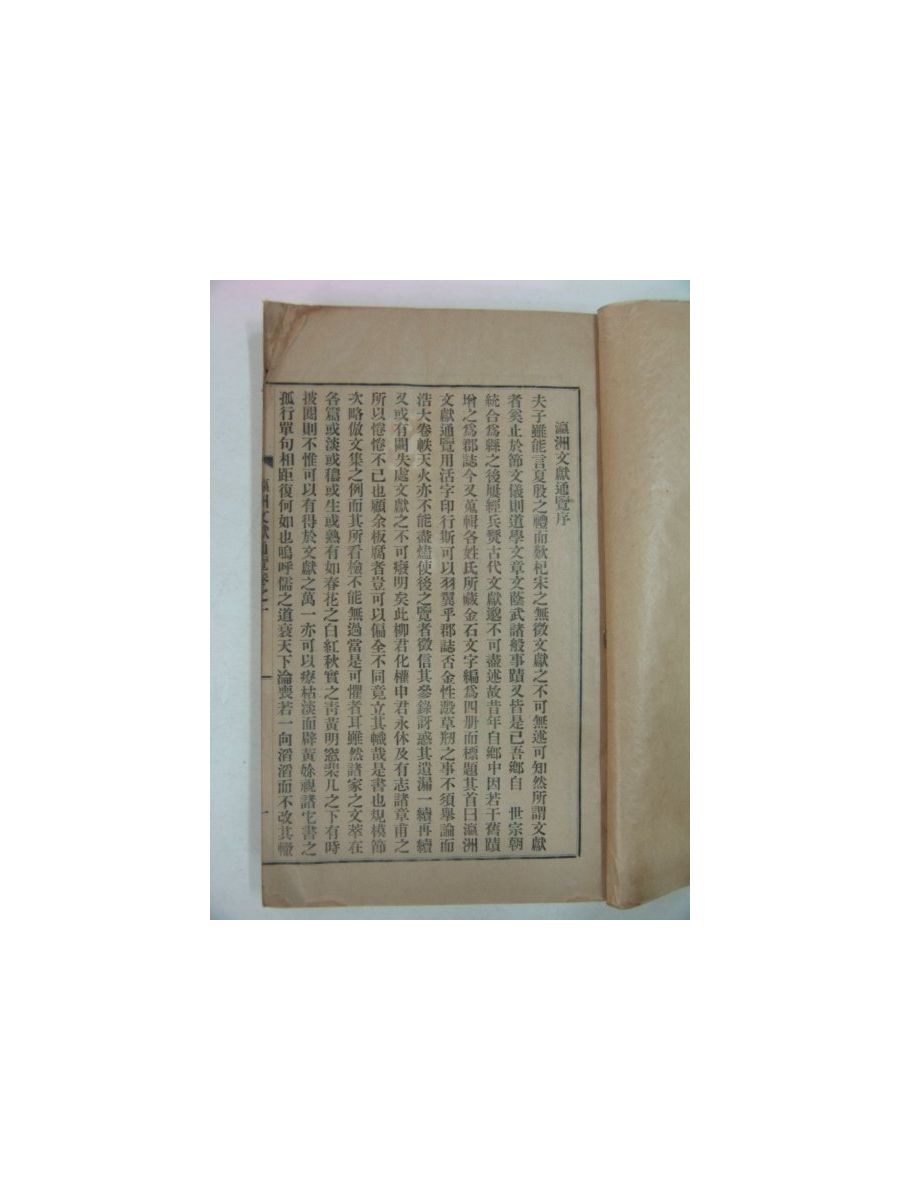 瀛洲文獻通覽序
夫子雖能言夏殷之禮而歎杞宋之無徵文獻之不可無述可知然所謂文獻
者奚止於節文儀則道學文章文蔭武諸般事蹟又皆是已吾鄉自 世宗朝
統合爲縣之後屢經兵燹古代文獻邈不可盡述故昔年自鄉中因若干舊蹟
增之爲郡誌今又蒐輯各姓氏所藏金石文字編爲四册而標題其首曰瀛洲
文獻通覽用活字印行斯可以羽翼乎郡誌否金性澱草剏之事不須舉論而
浩大卷帙天火亦不能盡燼使後之覽者徵信其參錄訝惑其遺漏一續再續
又或有闕失處文獻之不可廢明矣此柳君化權申君永休及有志諸章甫之
所以惓惓不已也顧余板腐者豈可以偏全不同竟立其幟哉是書也規模節
次略倣文集之例而其所看檢不能無過當是可懼者耳雖然諸家之文萃在
各篇或淡或穠或生或熟有如春花之白紅秋實之靑黃明窓棐几之下有時
披閱則不惟可以有得於文獻之萬一亦可以療枯淡而辟黃妳視諸宅書之
孤行單句相距復何如也嗚呼儒之道衰天下淪喪若一向滔滔而不改其轍
瀛洲文獻通覽卷之一
一